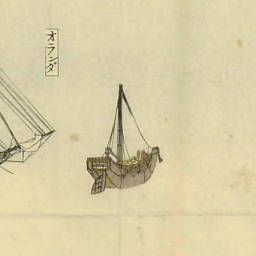 オランダ